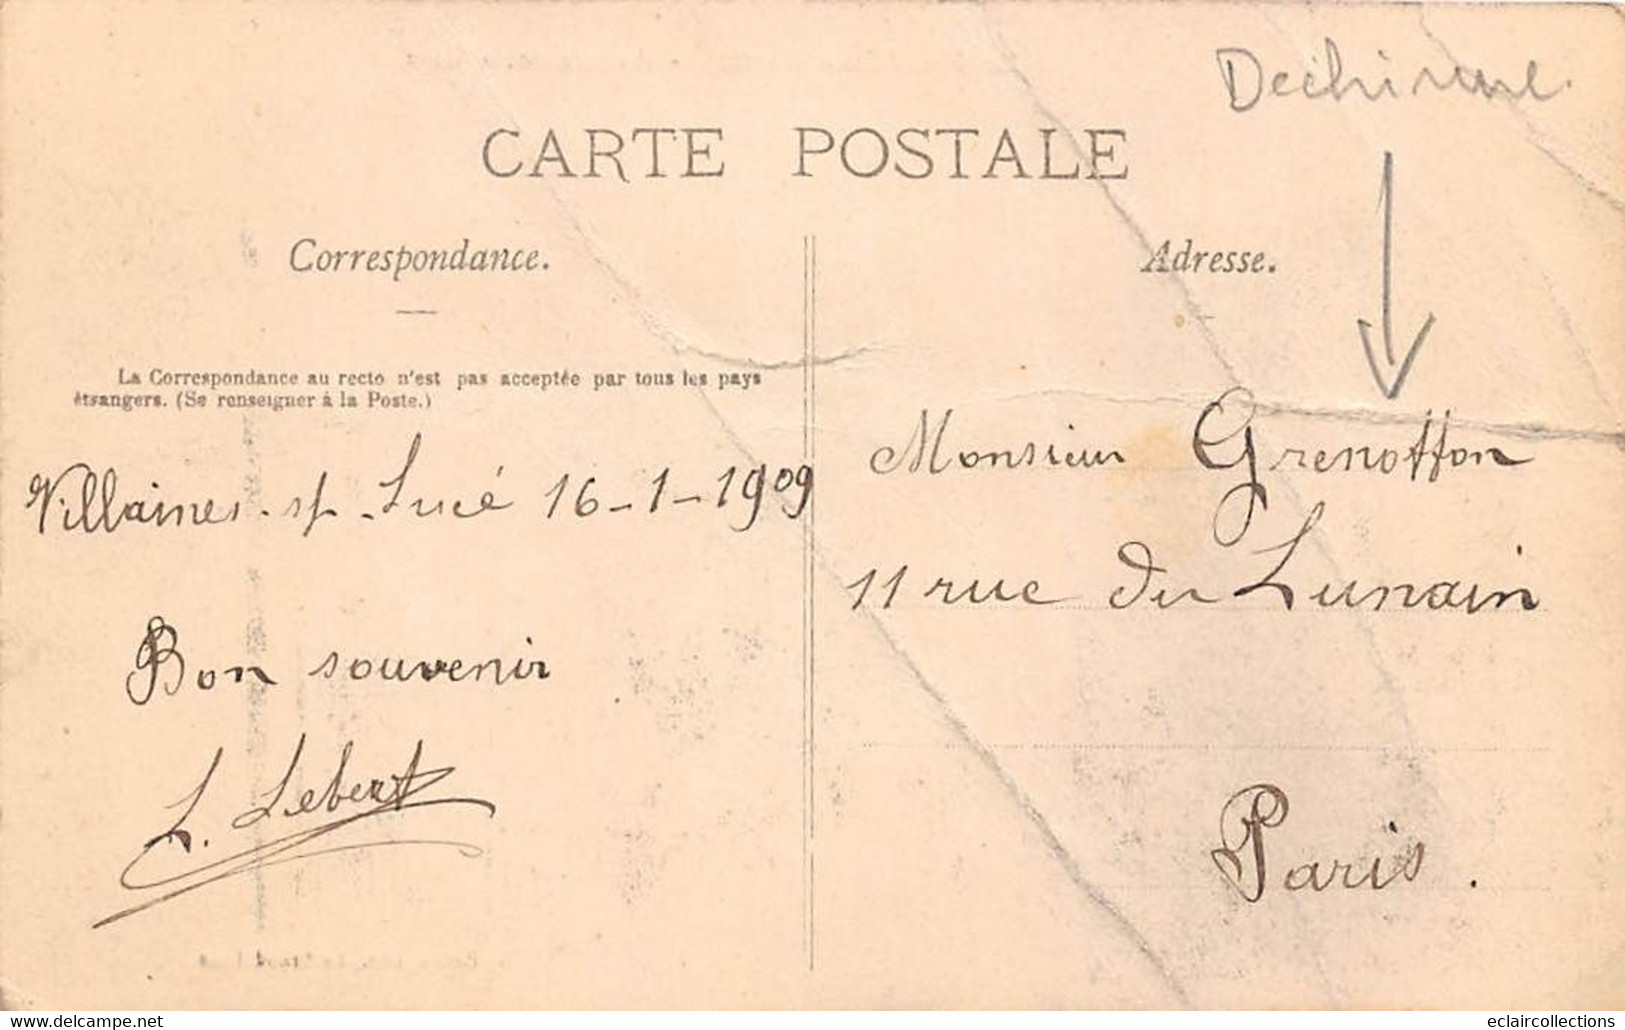 Dechirure.
CARTE POSTALE
Correspondance.
Adresse.
La Correspondance au recto n'est pas acceptée par tous les pays
étrangers. (Se renseigner à la Poste.)
Villaines-s/-Lucé 16-1-1909
Bon souvenir
L. Lebert
Monsieur Grenotton
11 rue du Lunain
Paris.
www.delcampe.net
eclaircollections